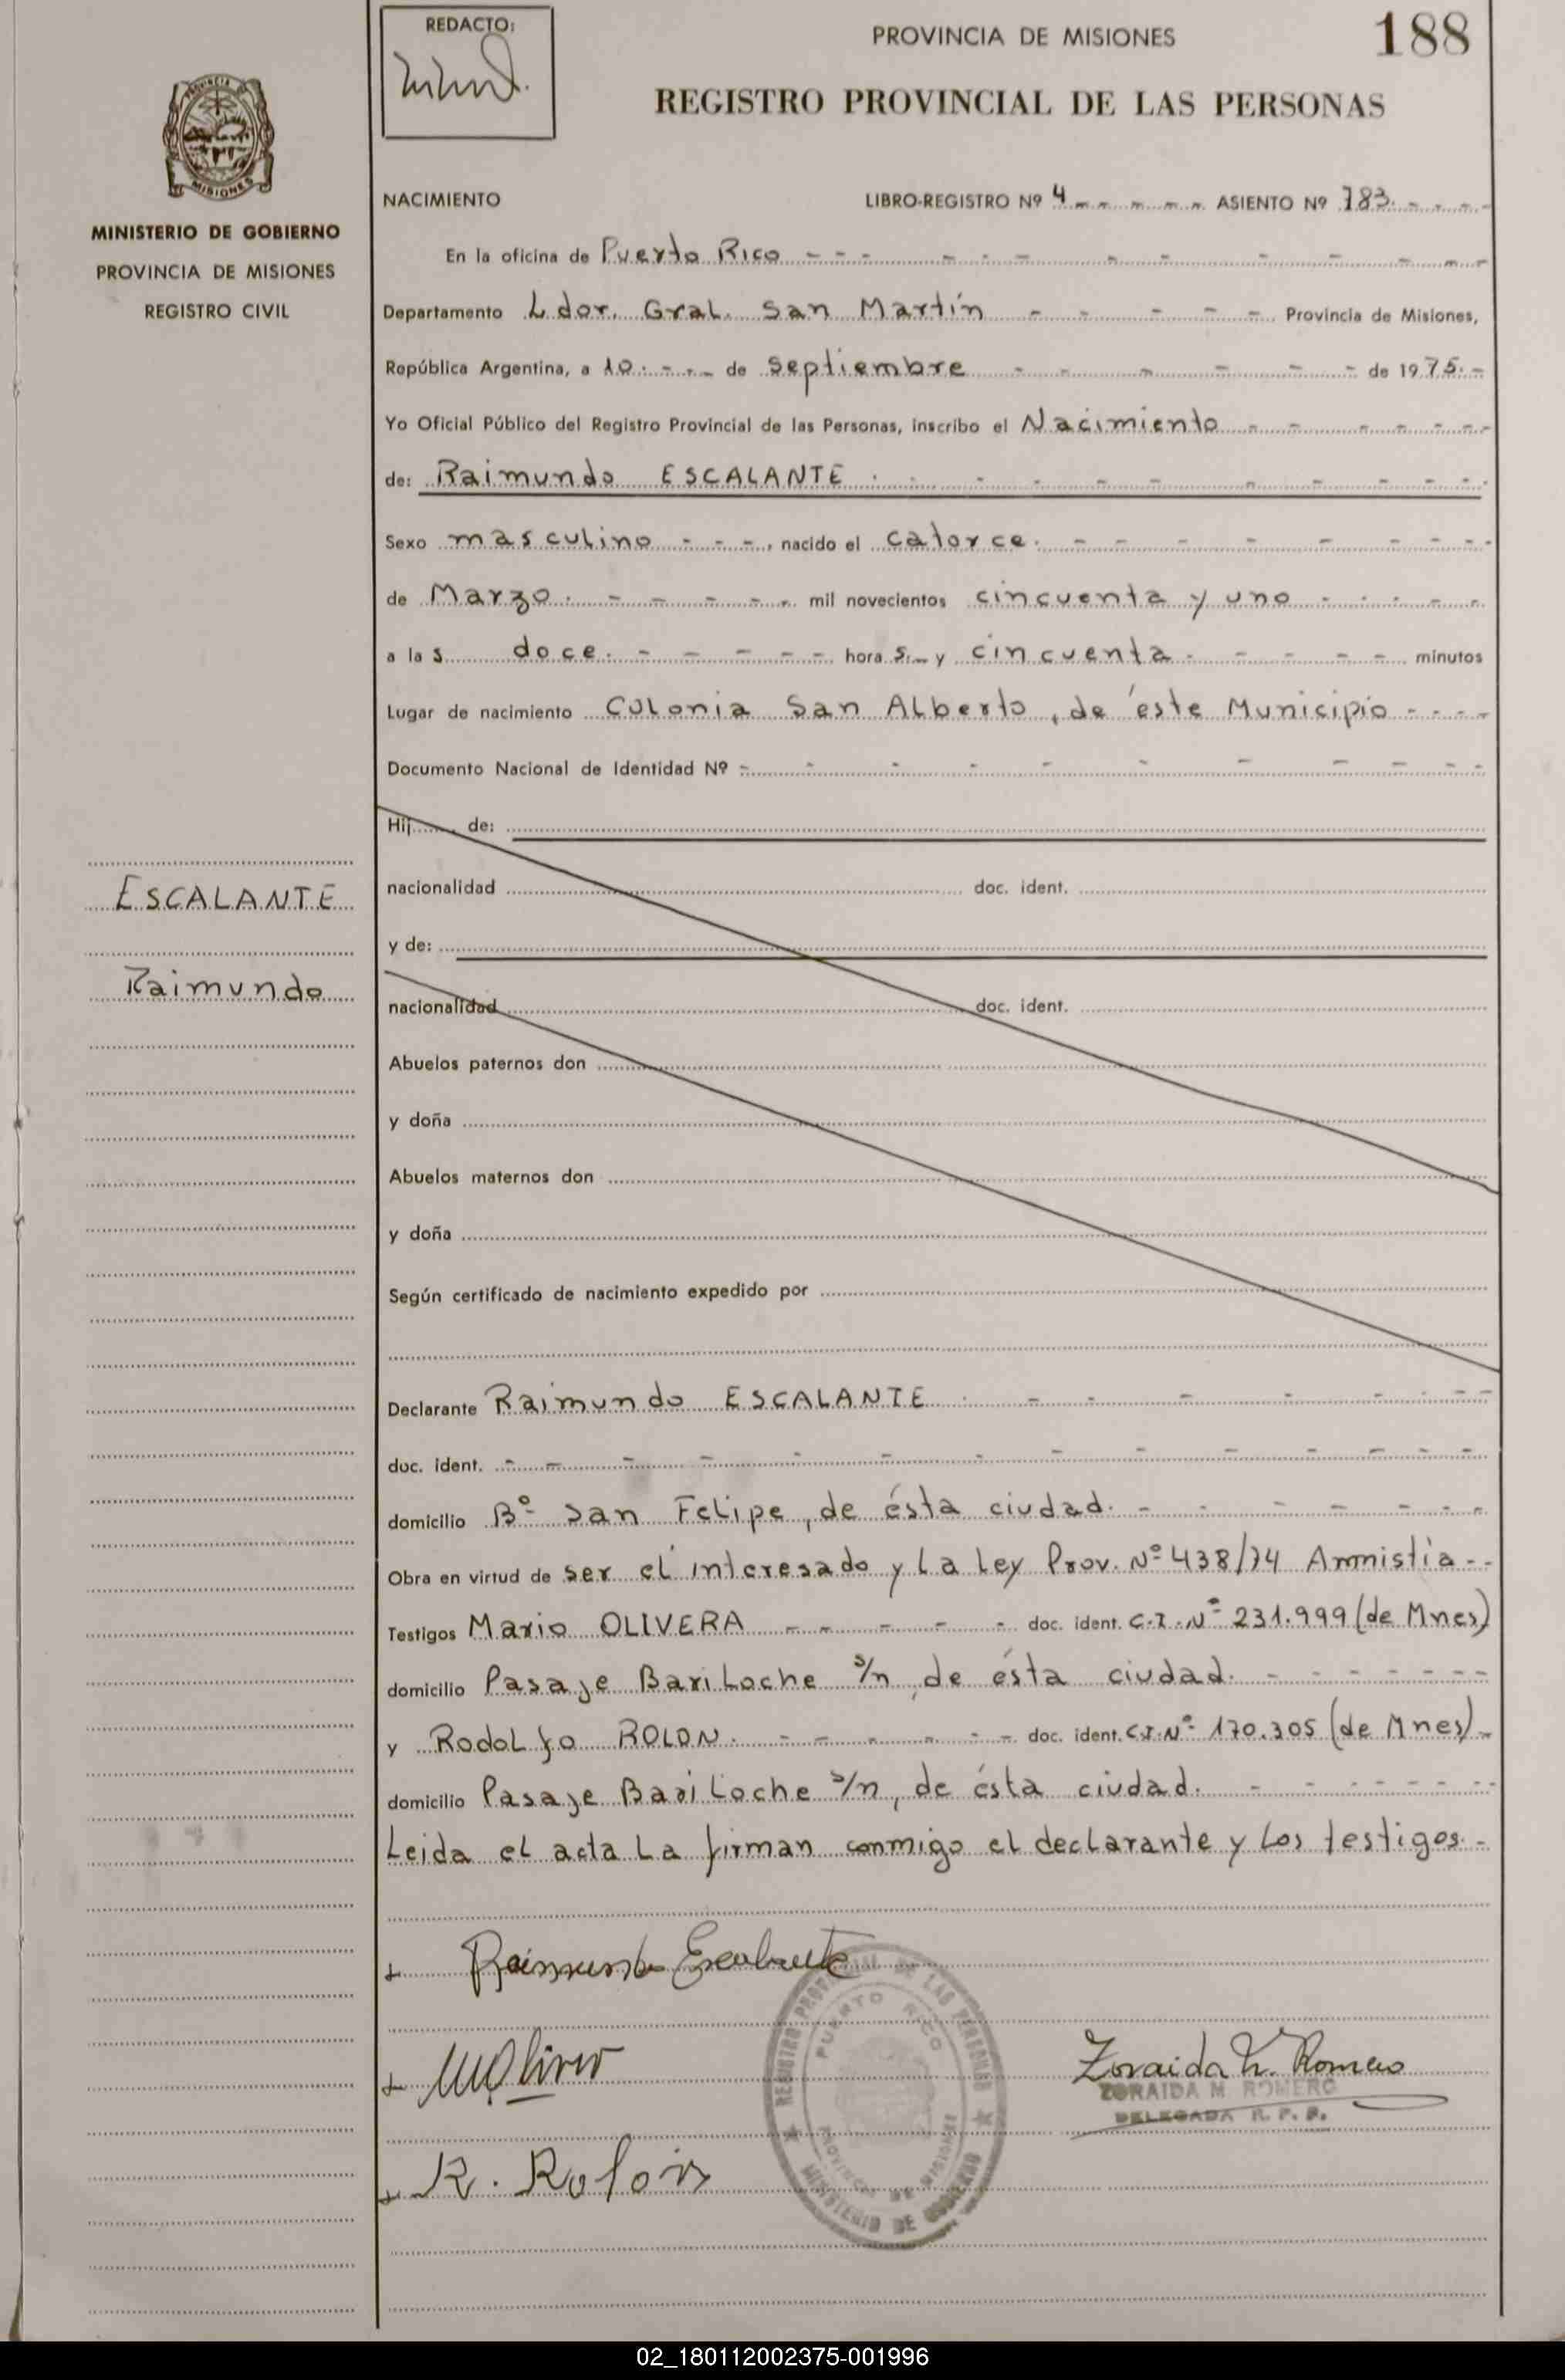 REDACTO:
PROVINCIA DE MISIONES
188
REGISTRO PROVINCIAL DE LAS PERSONAS
MISIONES
MINISTERIO DE GOBIERNO
PROVINCIA DE MISIONES
REGISTRO CIVIL
NACIMIENTO LIBRO-REGISTRO Nº 4 ASIENTO Nº 783.
En la oficina de Puerto Rico
Departamento Ldor. Gral. San Martín Provincia de Misiones,
República Argentina, a 10. de septiembre de 1975.
Yo Oficial Público del Registro Provincial de las Personas, inscribo el Nacimiento
de: Raimundo ESCALANTE
Sexo masculino, nacido el catorce.
de Marzo. mil novecientos cincuenta y uno
a las doce. horas. y cincuenta minutos
Lugar de nacimiento Colonia San Alberto, de éste Municipio
Documento Nacional de Identidad Nº
Hij de:
nacionalidad doc. ident.
y de:
nacionalidad doc. ident.
Abuelos paternos don
y doña
Abuelos maternos don
y doña
Según certificado de nacimiento expedido por
ESCALANTE
Raimundo
Declarante Raimundo ESCALANTE
doc. ident.
domicilio Bº San Felipe, de ésta ciudad.
Obra en virtud de ser el interesado y La Ley Prov. Nº 438/74 Amnistía
Testigos Mario OLIVERA doc. ident. C.I. Nº 231.999 (de Mnes)
domicilio Pasaje Bariloche s/n, de ésta ciudad.
y Rodolfo ROLON. doc. ident. C.I. Nº 170.305 (de Mnes)
domicilio Pasaje Bariloche s/n, de ésta ciudad.
Leida el acta La firman conmigo el declarante y los testigos.
Raimundo Escalante
MOlivera
R. Rolon
REGISTRO PROVINCIAL DE LAS PERSONAS
PUERTO RICO
PROVINCIA DE MISIONES
MINISTERIO DE GOBIERNO
Zoraida M. Romero
ZORAIDA M. ROMERO
DELEGADA R. P. P.
02_180112002375-001996